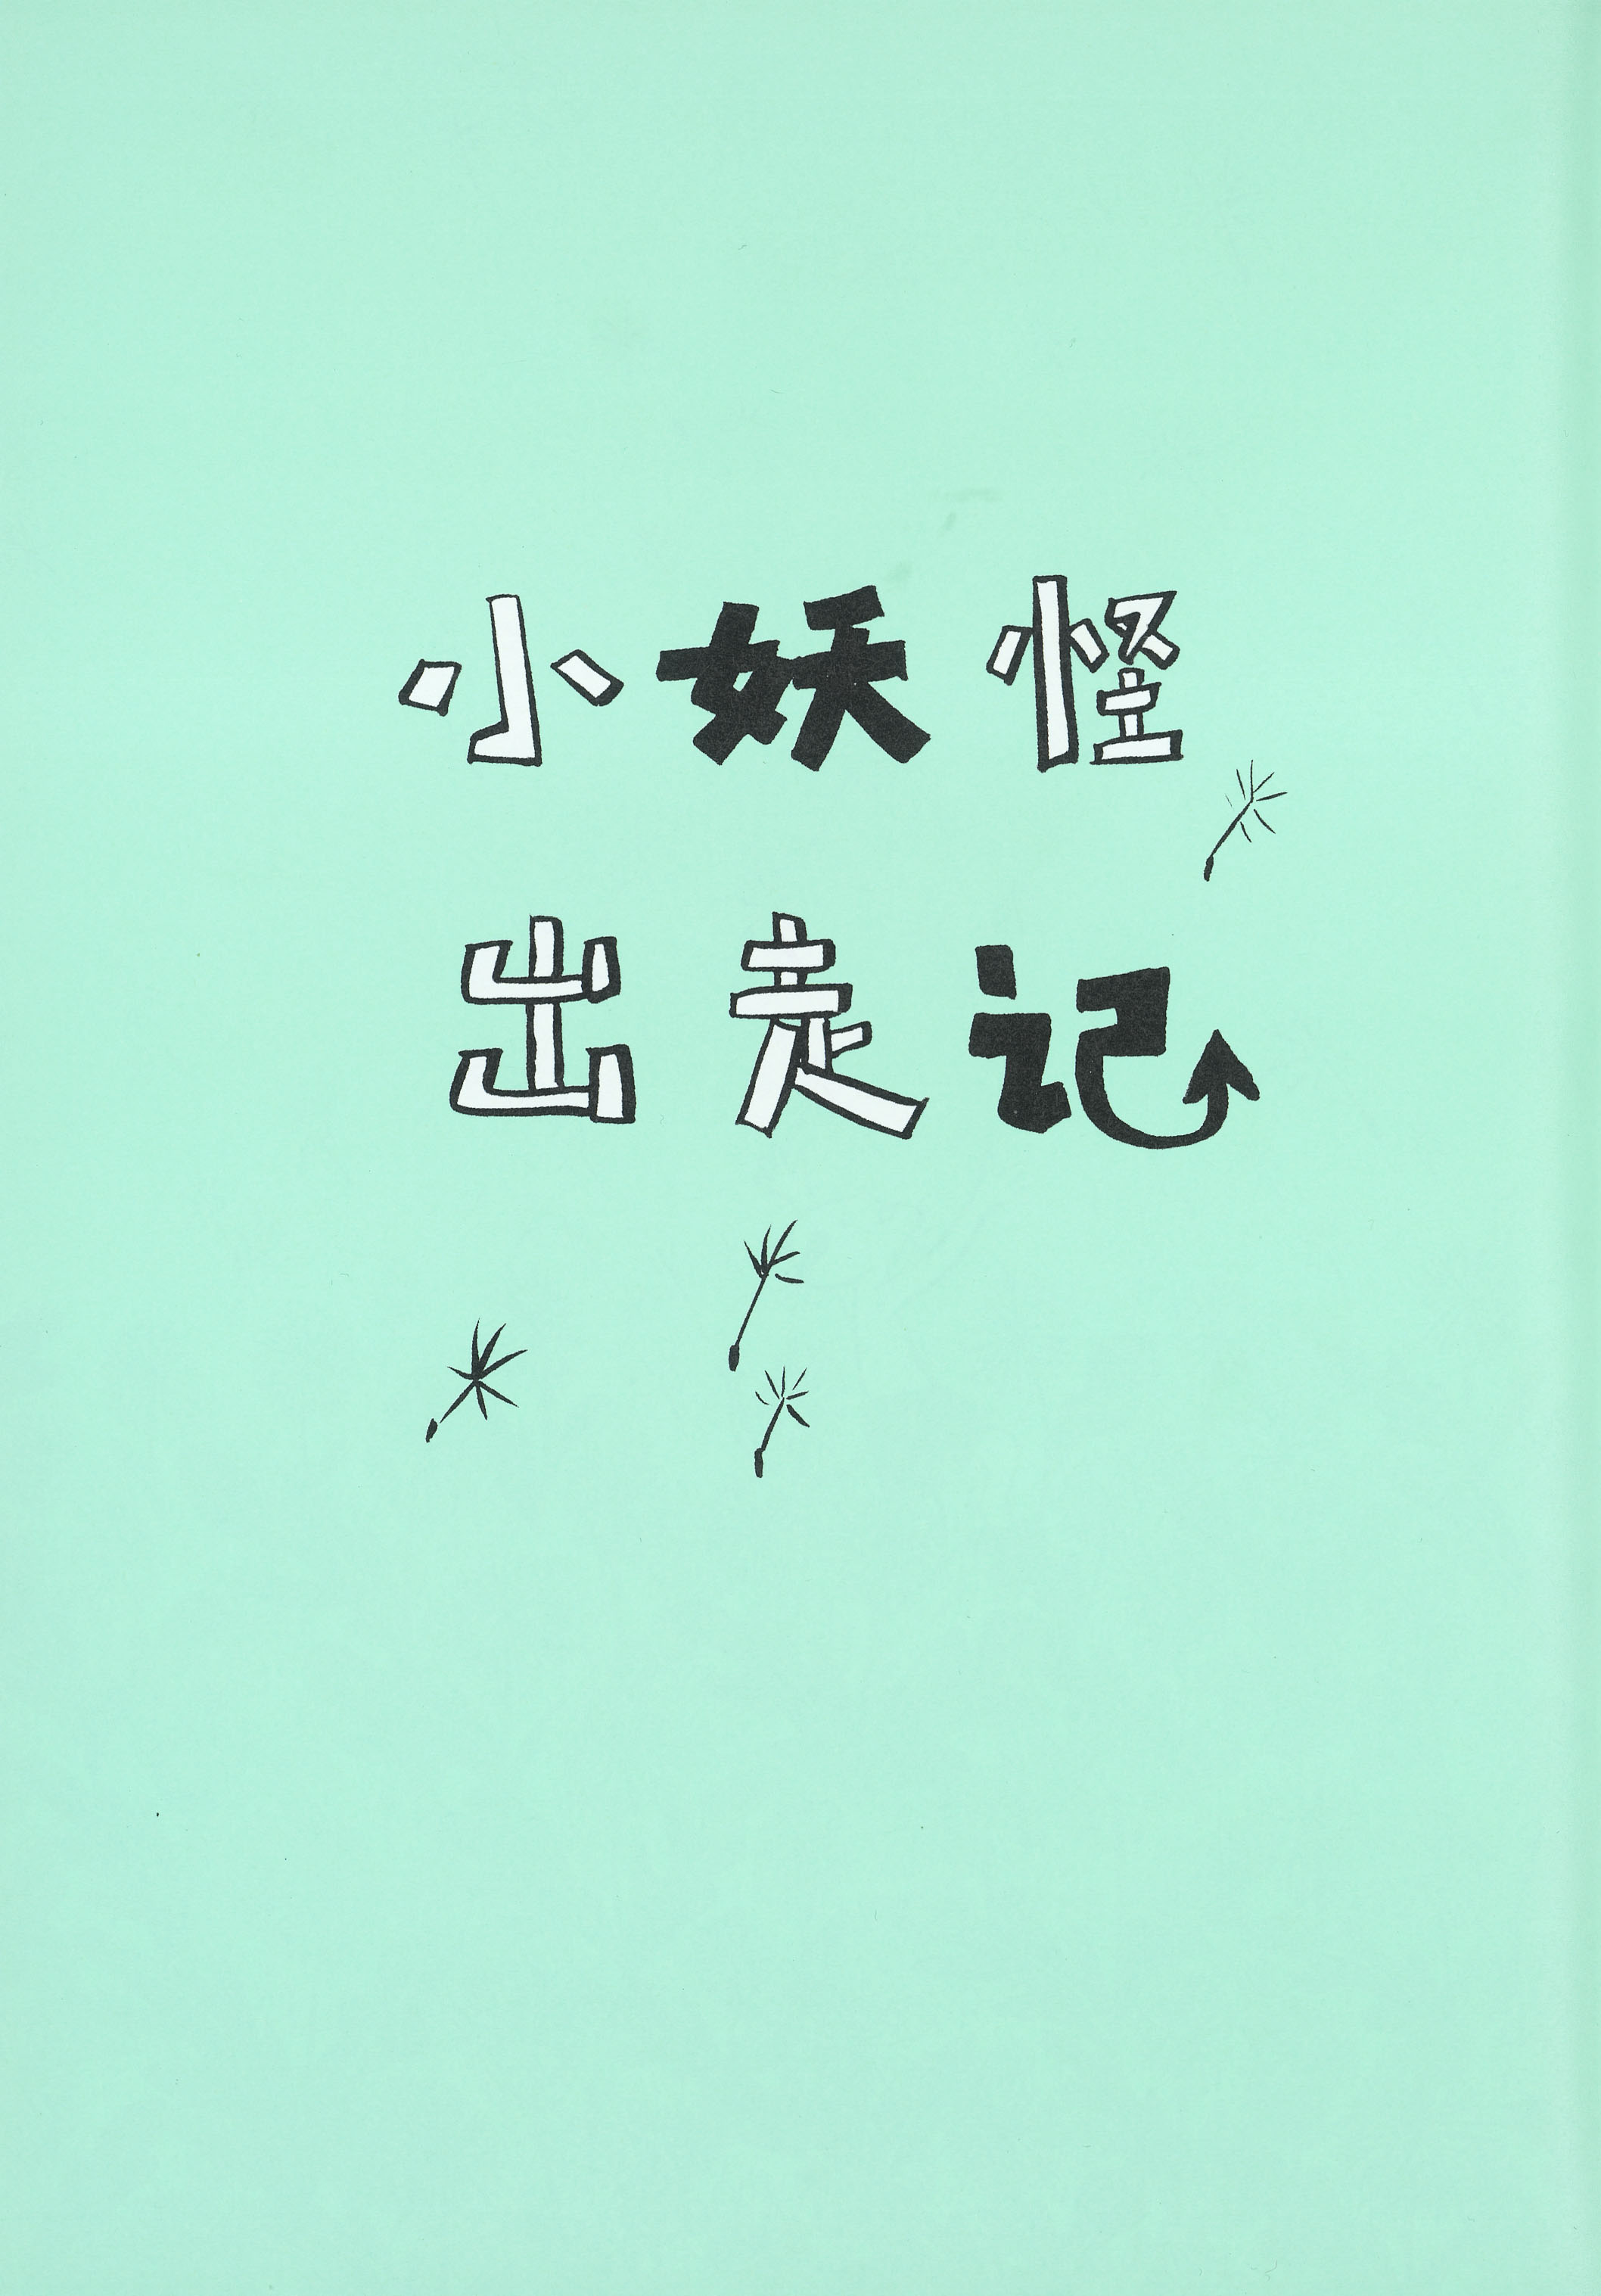 小妖怪
出走记